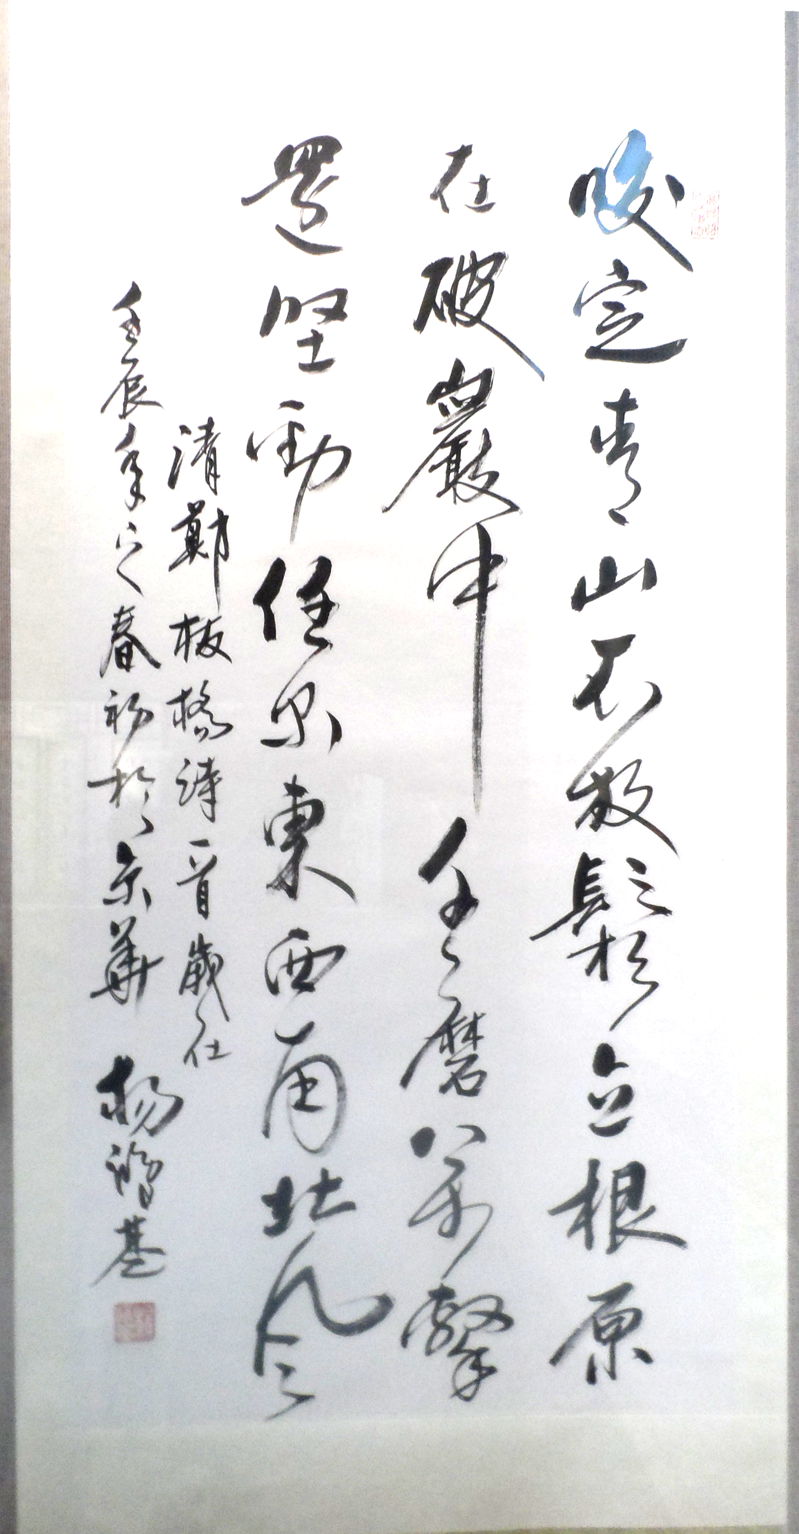 咬定青山不放鬆立根原
在破巖中千磨萬擊
還坚勁任尔東西南北风
清鄭板橋詩一首歲在
壬辰年之春初於京華 楊鴻基